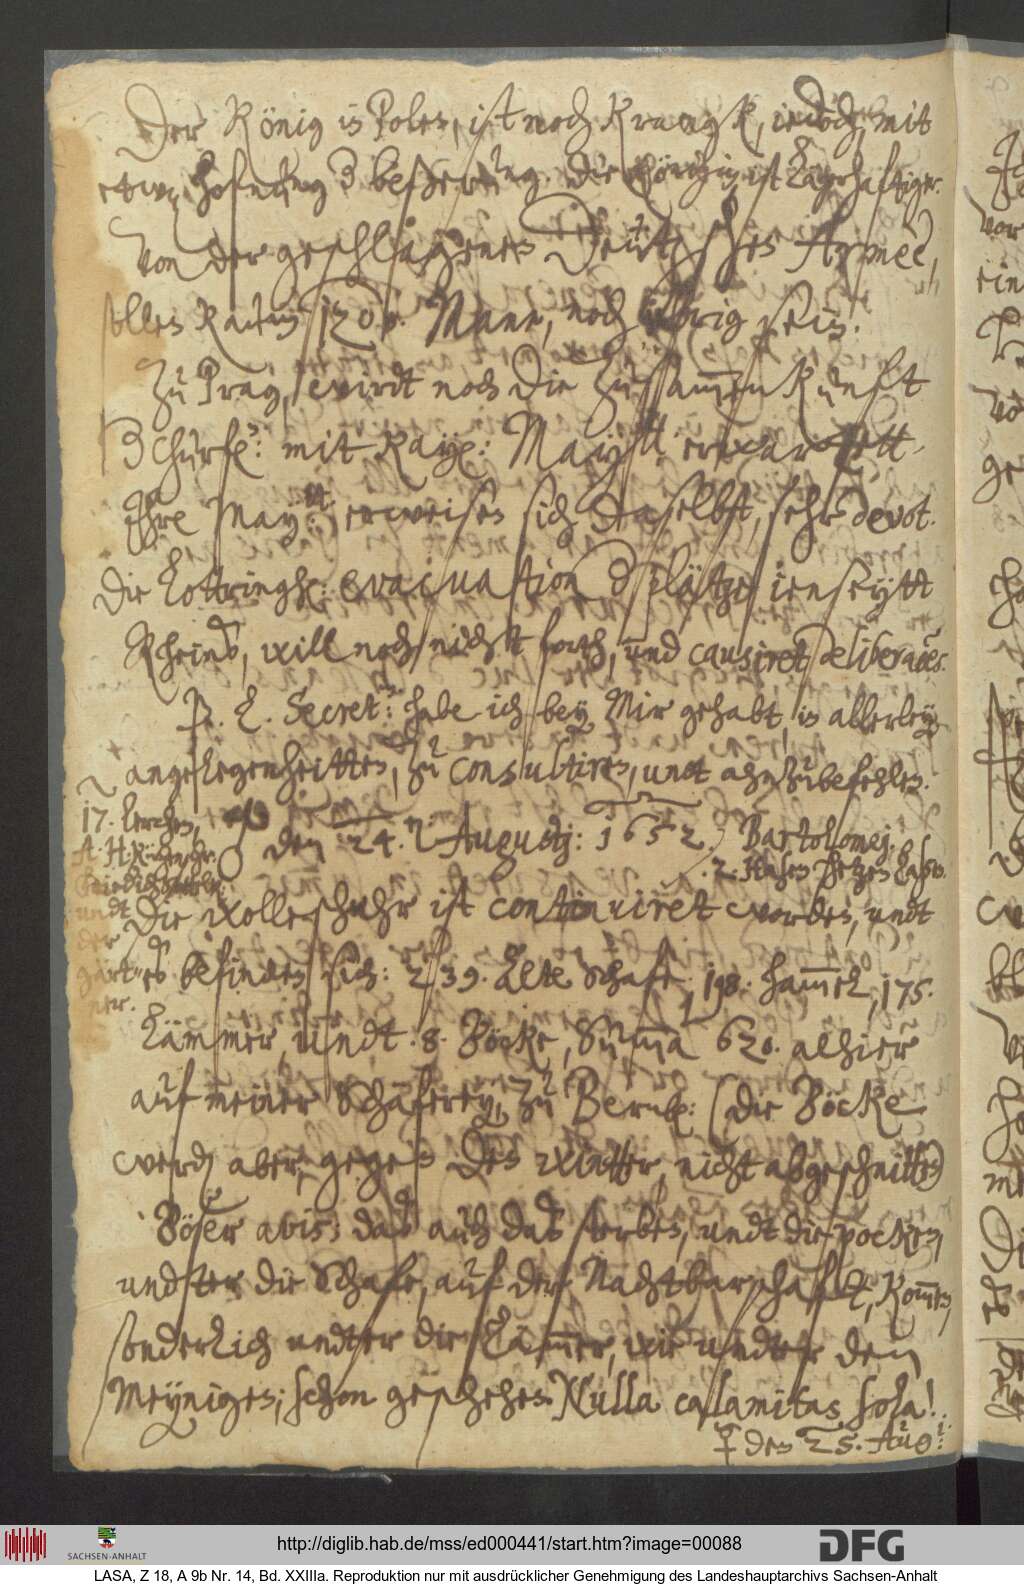 Der König in Polen, ist noch Kranck, iedoch, mit
etwas hofnung der beßerung. die Königin, ist
Von der geschlagenen Armèe,
sollen kaum 1200 Mann, noch übrig sein.
Zu Prag, wirdt noch die Zusammenkunft
der Churf: mit Kay: May:tt erwartett.
Ihre May:tt erweisen sich daselbst, sehr devot.
Die Lottringische evacuation der plätze ienseytt
Rheins, will noch nicht forth, und causiret deliberationes.
P. L. Secret: habe ich bey Mir gehabt, in allerley
angelegenheitten, zu consultiren, undt ahnzubefehlen.
17. Lerchen,
undt
der
gärt-
ner.
den 24. Augustj: 1652. Bartolomej.
2. Hasen
Die wolleschuhr ist continuiret worden, undt
es befinden sich: 239. Alte Schafe, 198. hammel, 175.
Lämmer, undt 8. Böcke, Summa 620. alhier
auf meiner Schäferey, zu Bernb: (die Böcke
werden aber, gegen des winter, nicht abgeschnitten)
Böser avis: das auch das sterben, undt die pocken,
undter die Schafe, auf der Nachtbarschafft, kommen,
sonderlich undter die Lämmer, wie undter den
Meynigen; schon geschehen. Nulla calamitas sola!
den 25. Aug:
http://diglib.hab.de/mss/ed000441/start.htm?image=00088
SACHSEN-ANHALT
DFG
LASA, Z 18, A 9b Nr. 14, Bd. XXIIIa. Reproduktion nur mit ausdrücklicher Genehmigung des Landeshauptarchivs Sachsen-Anhalt